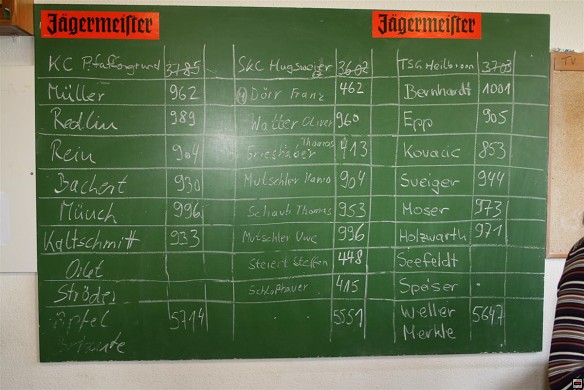 Jägermeister Jägermeister
KC 3785 SKC Hugsweier 3602 TSG Heilbronn 3703
Müller 962 Dörr Franz 462 Bernhardt 1001
Redlin 989 Walter Oliver 960 Epp 905
Rein 904 Thomas 413 Kovacic 853
Bachert 930 Mutschler 904 Sveiger 944
Münch 996 Schaub Thomas 953 Moser 973
Kaltschmitt 933 Mutschler Uwe 996 Holzwarth 971
Steiert Steffen 448 Seefeldt
Ströder 415 Speiser
5714 5551 Weller 5647
Merkle
TV